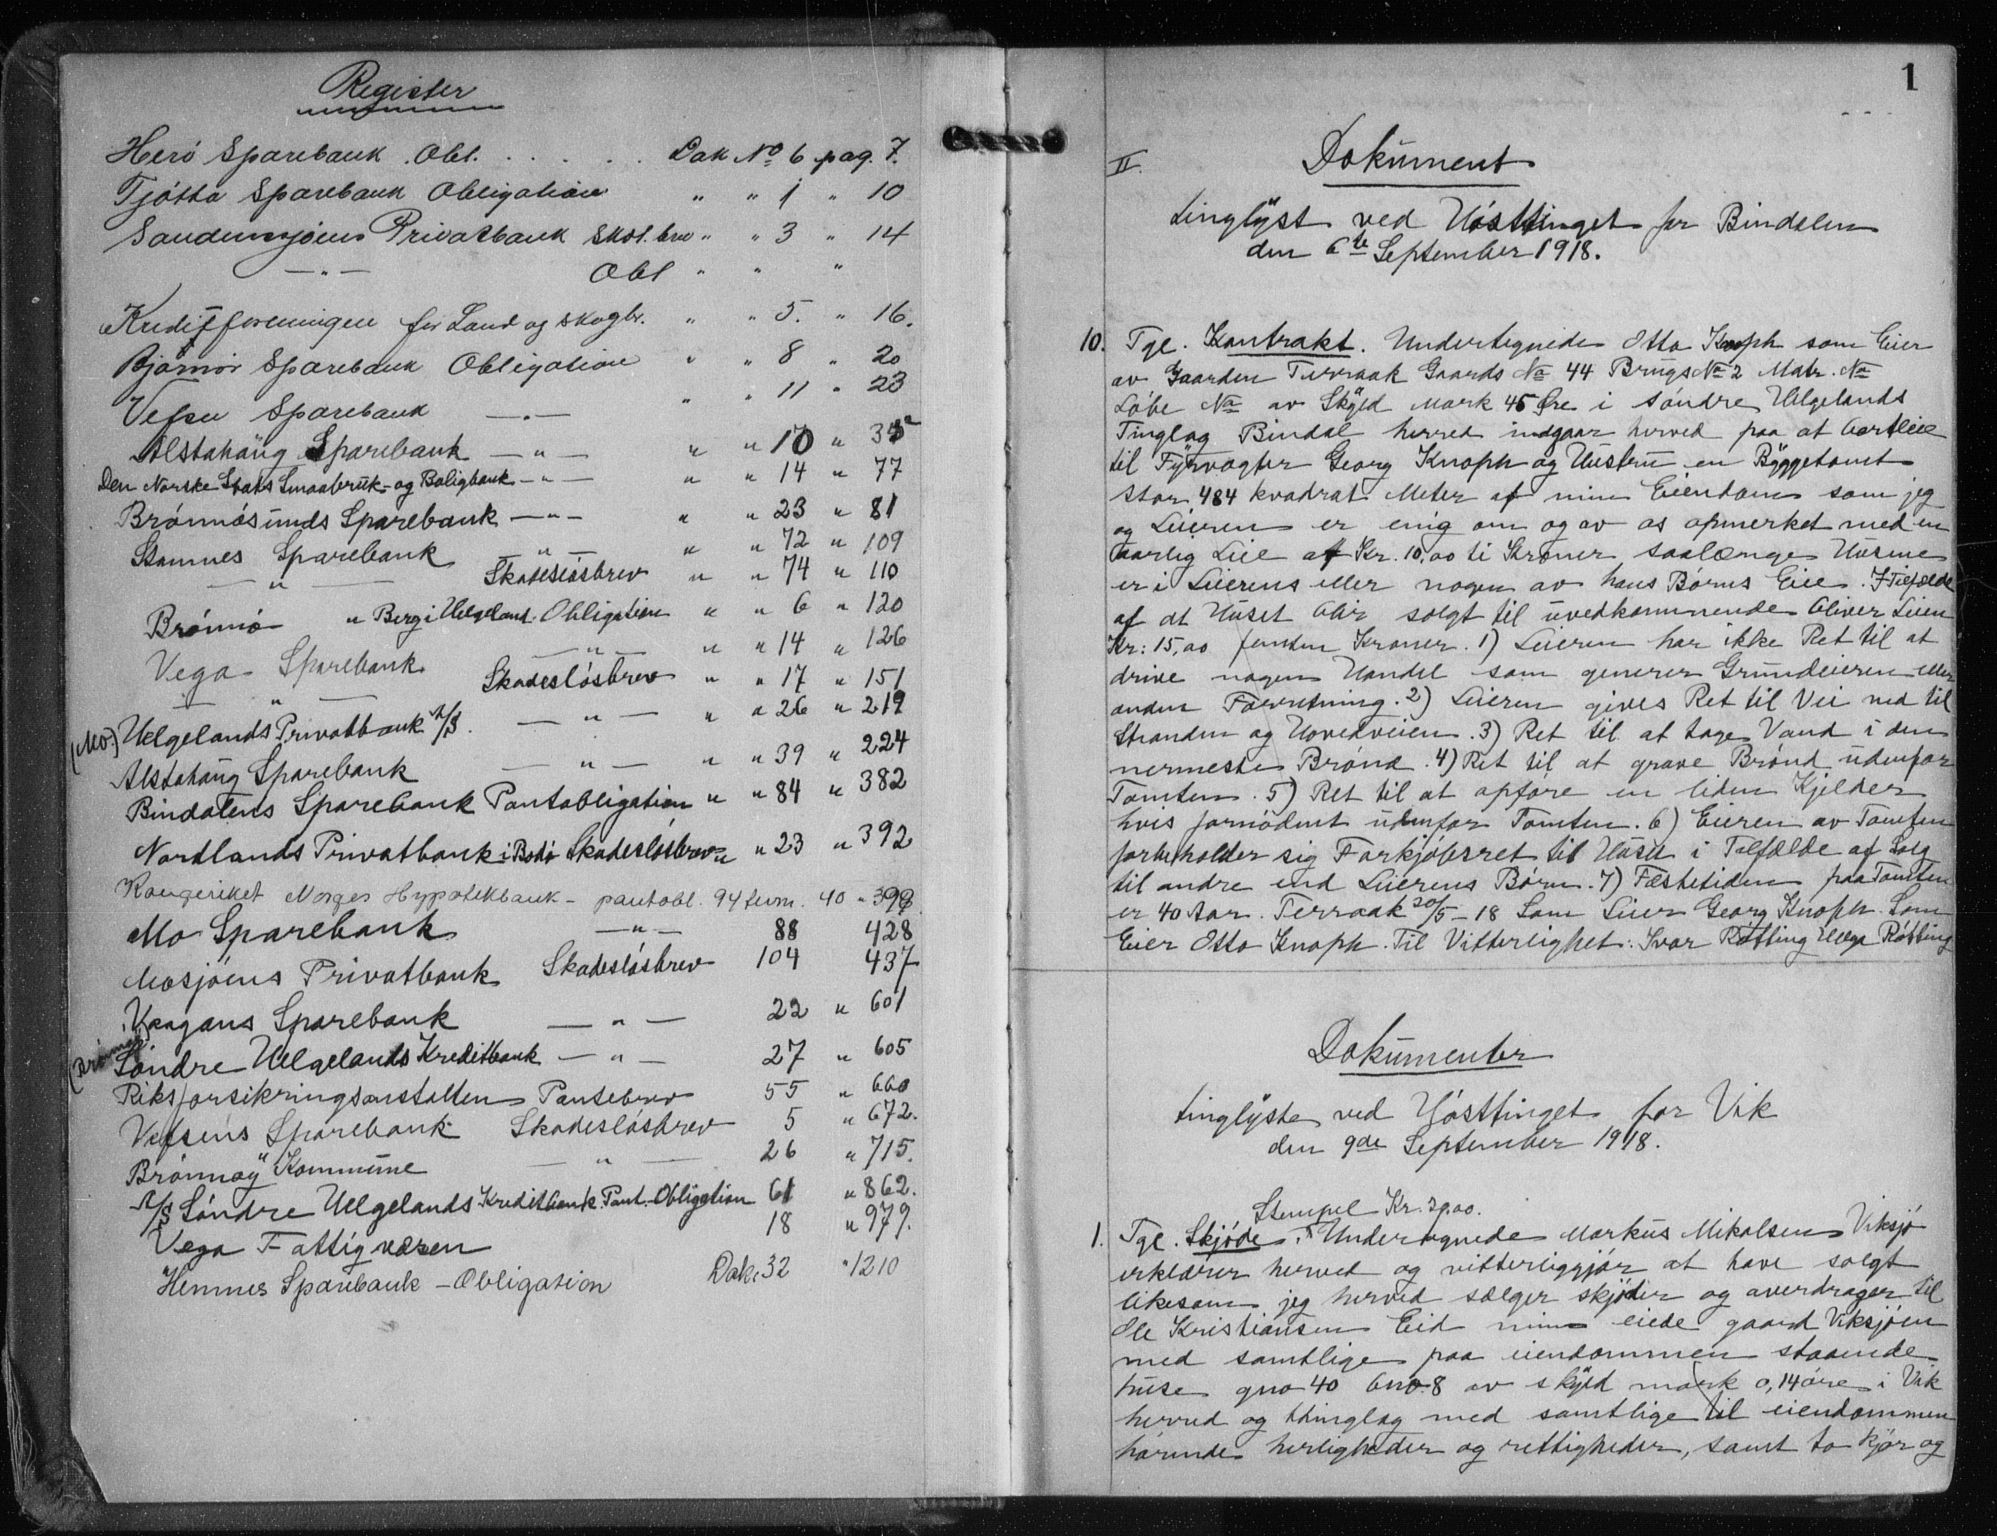 Register
Herö Sparebank . Obl. . . . . . Dok No 6 pag. 7.
Tjötta Sparebank Obligation " " 1 " 10
Sandnessjøens Privatbank Skdl. brev " " 3 " 14
— " — Obl " " "
Kreditforeningen for Land og skogbr. " " 5. " 16.
Bjørnör Sparebank Obligation " " 8 " 20
Vefsn Sparebank — " — " " 11 " 23
Alstahaug Sparebank — " — " " 10 "
Den Norske Stats Smaabruk- og Boligbank — " — " " 14 " 77
Brönnösunds Sparebank — " — " " 23 " 81
Stamnes Sparebank — " — " " 72 " 109
— " — Skadesløsbrev " " 74 " 110
Brönnö " Berg i Helgeland. Obligation " " 6 " 120
Vega Sparebank — " — " " 14 " 126
— " — Skadesløsbrev " " 17 " 151
(Mo.) Helgelands Privatbank A/S. — " — " " 26 " 219
Alstahaug Sparebank — " — " " 39 " 224
Bindalens Sparebank Pantobligation " " 84 " 382
Nordlands Privatbank i Bodö Skadesløsbrev " " 23 " 392
Kongeriket Norges Hypotekbank - pantobl. 94 " 398
Mo Sparebank — " — 88 428
Mosjöens Privatbank Skadesløsbrev 104 437
Vaagans Sparebank — " — 22 " 601
Söndre Helgelands Kreditbank — " — 27 " 605
Riksforsikringsanstalten Pantebrev 55 " 660
Vefsens Sparebank Skadesløsbrev 5 " 672.
Brönnöy Kommune — " — 26 " 715.
A/S Söndre Helgelands Kreditbank Pant. Obligation 61 " 862.
Vega Fattigvæsen 18 " 979.
Hemnes Sparebank - Obligation Dok. 32 " 1210
1
II.
Dokument
tinglyst ved Hösttinget for Bindalen
den 6te September 1918.
10. Tgl. Kontrakt. Undertegnede Otto Knoph som Eier
av Gaarden Terraak Gaards No 44 Brugs No 2 Matr. No
Löbe No av Skyld Mark 45 Øre i söndre Helgelands
Tinglag Bindal herred indgaar herved paa at bortleie
til Fyrvogter Georg Knoph og Hustru en Byggetomt
stor 484 kvadrat Meter af min Eiendom som jeg
og Leieren er enig om og av os opmerket med en
aarlig Leie af Kr. 10,00 ti Kroner saalænge Husene
er i Leierens eller nogen av hans Börns Eie. I Tilfælde
af at Huset blir solgt til uvedkommende bliver Leien
Kr: 15,00 femten Kroner. 1) Leieren har ikke Ret til at
drive nogen Handel som generer Grundeieren eller
anden Forretning. 2) Leieren gives Ret til Vei ned til
Stranden og Hovedveien. 3) Ret til at tage Vand i den
nermeste Brönd. 4) Ret til at grave Brönd udenfor
Tomten. 5) Ret til at opföre en liden Kjelder
hvis fornödent udenfor Tomten. 6) Eieren av Tomten
forbeholder sig Forkjöbsret til Huset i Tilfælde af Salg
til andre end Leierens Börn. 7) Fæstetiden paa Tomten
er 40 Aar. Terraak 20/5-18 Som Leier Georg Knoph. Som
Eier Otto Knoph. Til Vitterlighet: Ivar Rötting Helge Rötting
Dokumenter
tinglyste ved Hösttinget for Vik
den 9de September 1918.
Stempel Kr.
1. Tgl. Skjöde. Undertegnede Markus Mikalsen Viksjö
erklærer herved og vitterliggjör at have solgt
likesom jeg herved sælger skjöder og averdrager til
Ole Kristiansen Eid min eiede gaard Viksjöen
med samtlige paa eiendommen staaende
huse gno 40 bno. 8 av skyld mark 0,14 öre i Vik
herred og thinglag med samtlige til eiendommen
hörende herligheder og rettigheder, samt to kjör og